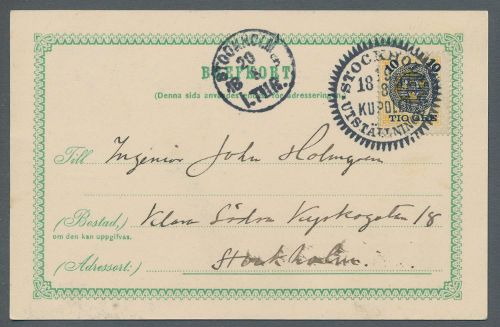 BREFKORT.
(Denna sida användes endast för adresseringen)
STOCKHOLM
20
1.TUR.
STOCKHOLM
18
KUPOL
UTSTÄLLNING
10
TIO ÖRE
Till Ingeniör John Holmgren
(Bostad,) Klara Södra Kyrkogatan 18
om den kan uppgifvas.
(Adressort:) Stockholm.